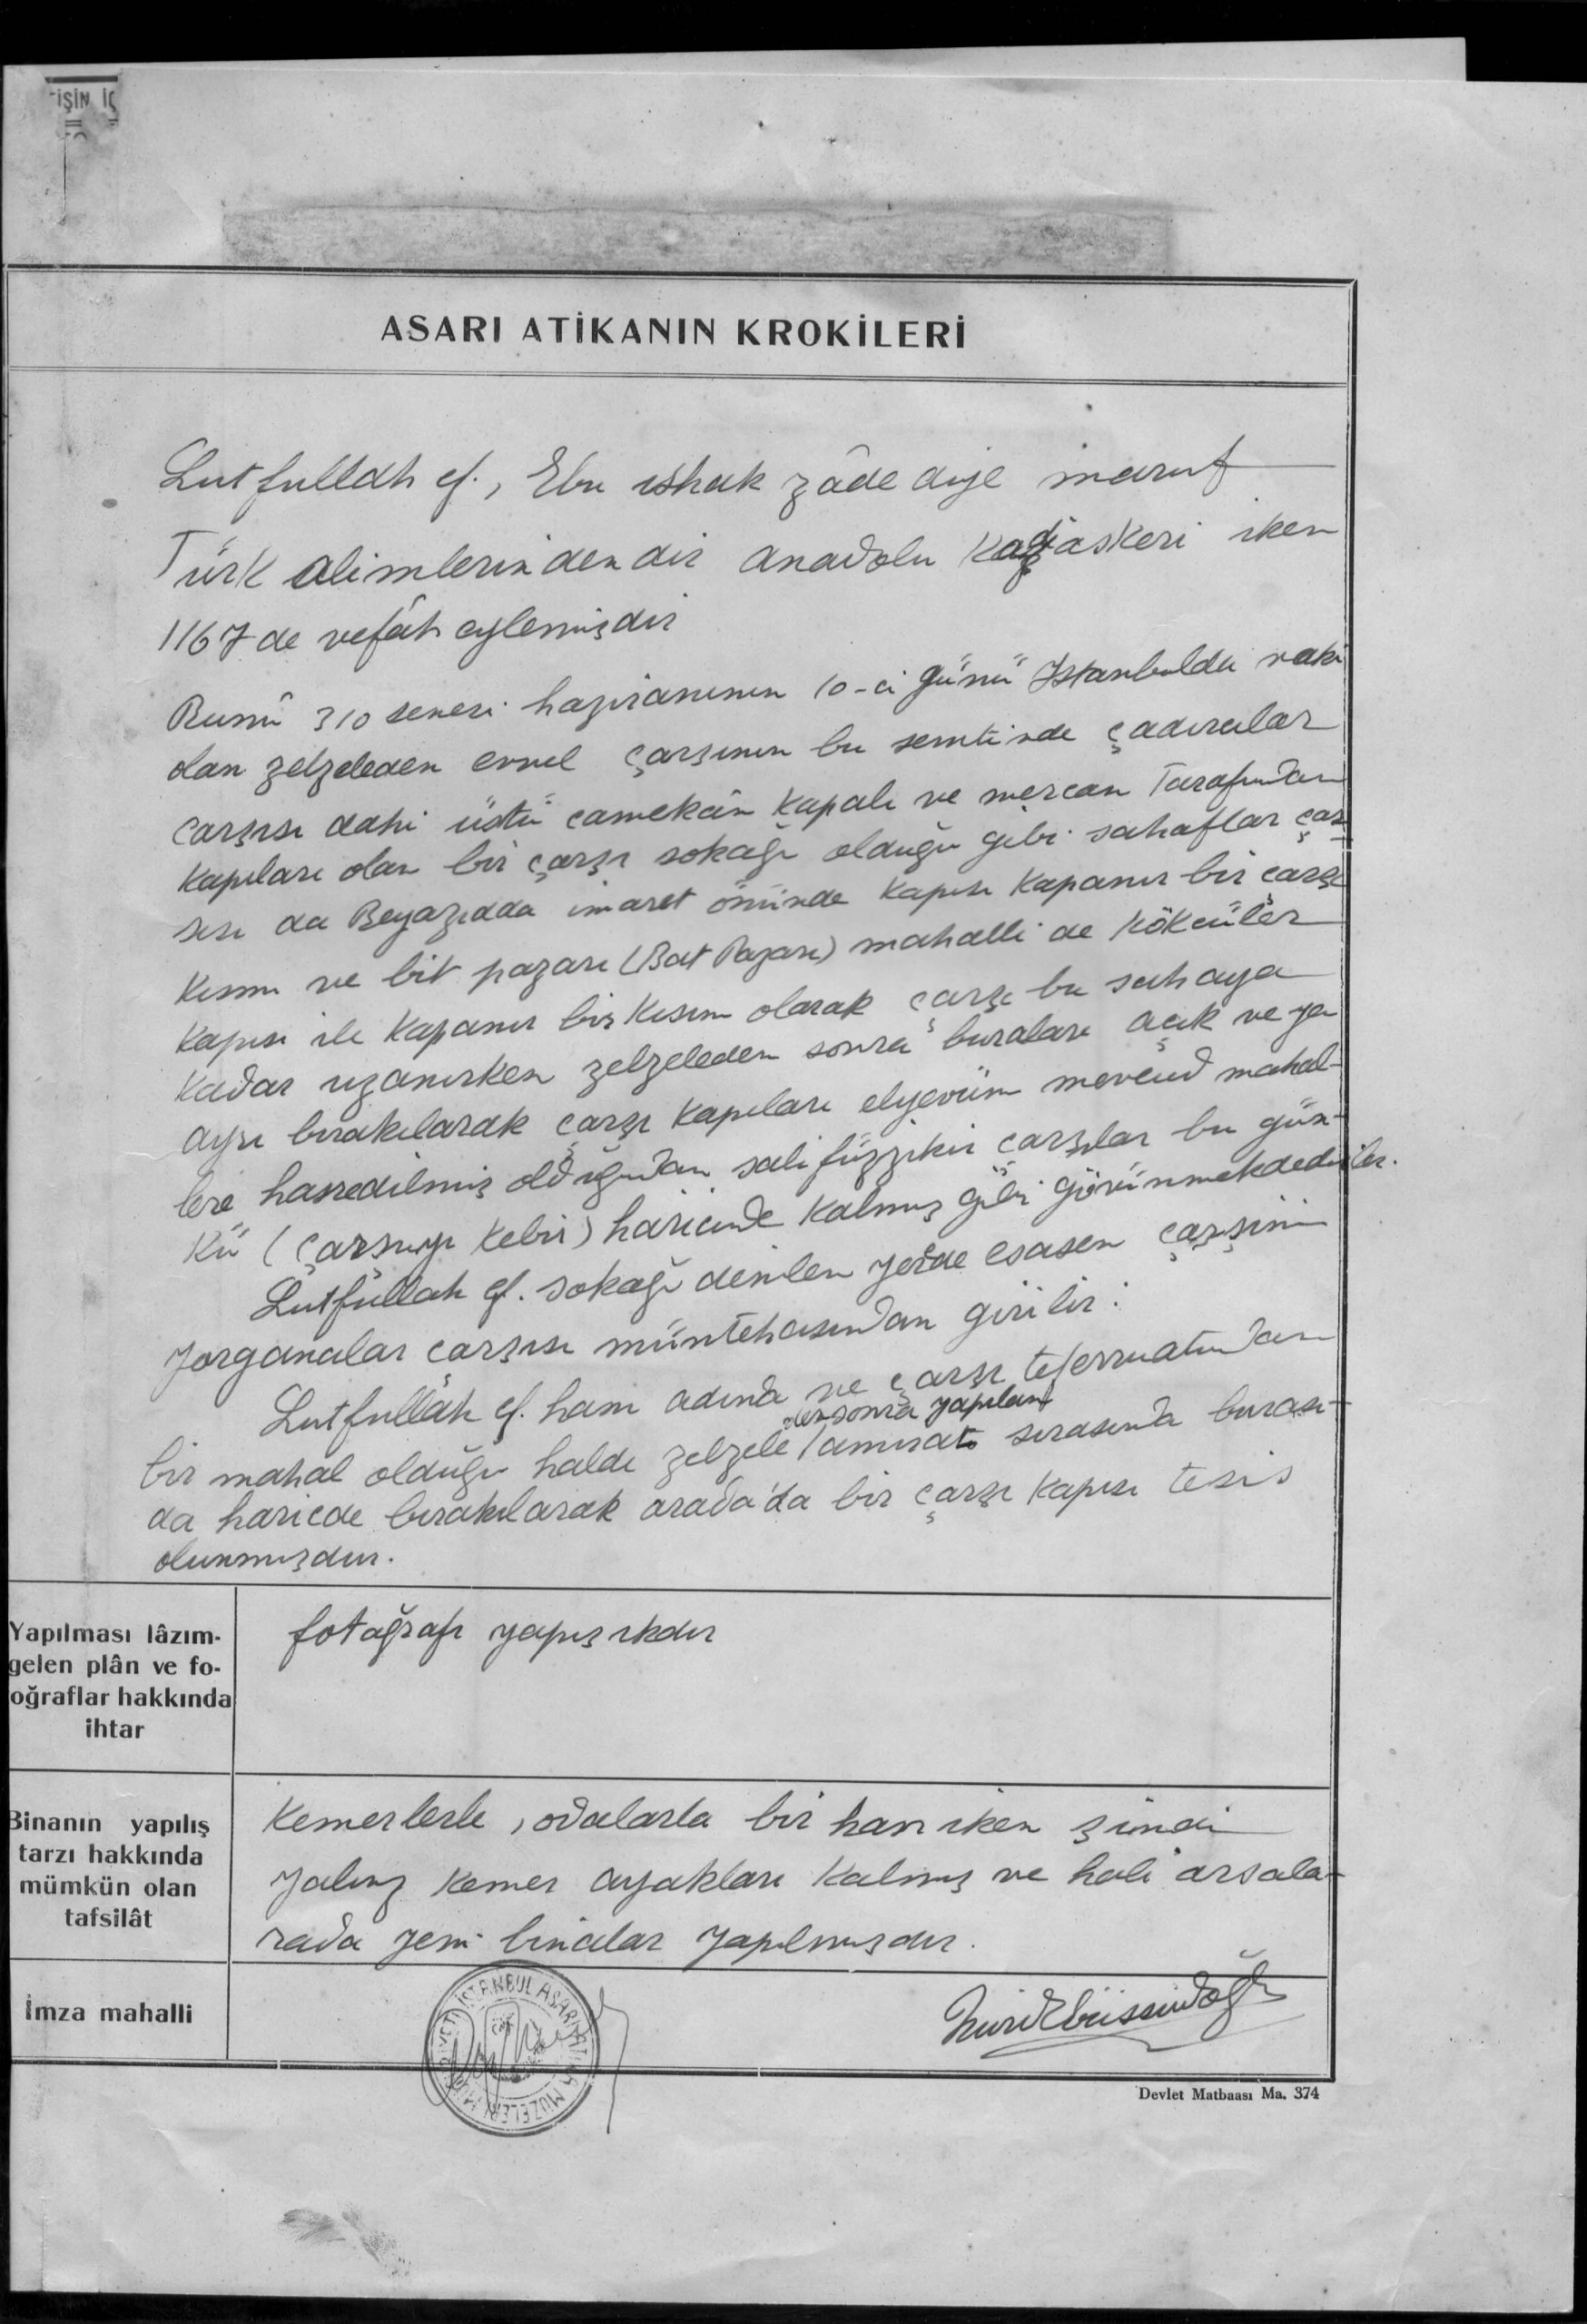 İŞİN İÇ
ASARI ATİKANIN KROKİLERİ
Lutfullah ef., Ebu ishak zâde diye maruf
Türk alimlerindendir Anadolu Kadiaskeri iken
1167 de vefât eylemişdir
Rumî 310 senesi haziranının 10-ci günü Istanbulda vaki
olan zelzeleden evvel çarşının bu semtinde çadırcılar
çarşısı dahi üstü camekân kapalı ve mercan Tarafından
kapıları olan bir çarşı sokağı olduğu gibi sahaflar çar-
şısı da Beyazıdda imaret önünde kapısı kapanır bir çarşı
kısmı ve bit pazarı (Bat Pazarı) mahalli de kökcüler
kapısı ile kapanır bir kısım olarak çarşı bu sahaya
kadar uzanırken zelzeleden sonra buraları açık ve ya
ayrı bırakılarak çarşı kapıları elyevüm mevcud mahal-
lere hasredilmiş olduğundan salifüzzikir çarşılar bu gün-
kü (Çarşuyı Kebir) haricinde kalmış gibi görünmekdedirler.
Lutfullah ef. sokağı denilen yerde esasen çarşının
Yorgancılar çarşısı müntehasından girilir.
Lutfullâh ef. hanı adında ve çarşı teferruatından
bir mahal olduğu halde zelzeleden sonra yapılan tamirat sırasında burası
da haricde bırakılarak arada'da bir çarşı kapısı tesis
olunmuşdur.
Yapılması lâzım-
gelen plân ve fo-
oğraflar hakkında
ihtar
fotoğrafı yapışıkdır
Binanın yapılış
tarzı hakkında
mümkün olan
tafsilât
Kemerlerle, odalarla bir han iken şimdi
yalnız kemer ayakları kalmış ve hali arsala-
rada yeni binalar yapılmışdır.
İmza mahalli
İSTANBUL ASARI ATİKA MÜZELERİ
Devlet Matbaası Ma. 374